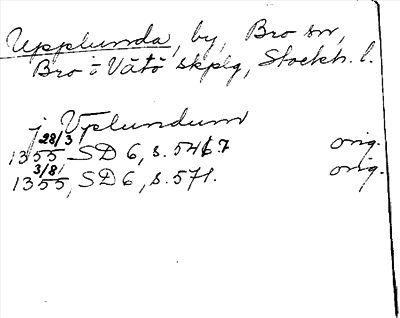 Upplunda, by, Bro sn,
Bro o Vätö skplg, Stockh. l.
j Vplundum
28/3
1355 SD 6, s. 547 orig.
3/8
1355, SD 6, s. 571. orig.